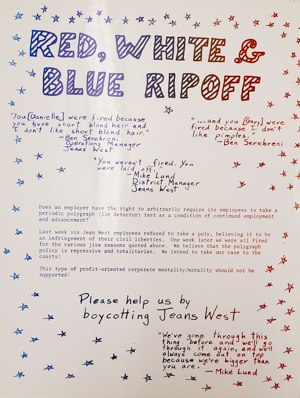 RED, WHITE &
BLUE RIPOFF
"You [Danielle] were fired because
you have short blond hair and
I don't like short blond hair."
— Ben Serebreni
Operations Manager
Jeans West
"...and you [Gary] were
fired because I don't
like pimples."
— Ben Serebreni
"You weren't fired. You
were laid off."
— Mike Lund
District Manager
Jeans West
Does an employer have the right to arbitrarily require its employees to take a
periodic polygraph (lie detector) test as a condition of continued employment
and advancement?
Last week six Jean West employees refused to take a poly, believing it to be
an infringement of their civil liberties. One week later we were all fired
for the various jive reasons quoted above. We believe that the polygraph
policy is repressive and totalitarian. We intend to take our case to the
courts!
This type of profit-oriented corporate mentality/morality should not be
supported!
Please help us by
boycotting Jeans West
"We've gone through this
thing before and we'll go
through it again, and we'll
always come out on top
because we're bigger than
you are."
— Mike Lund